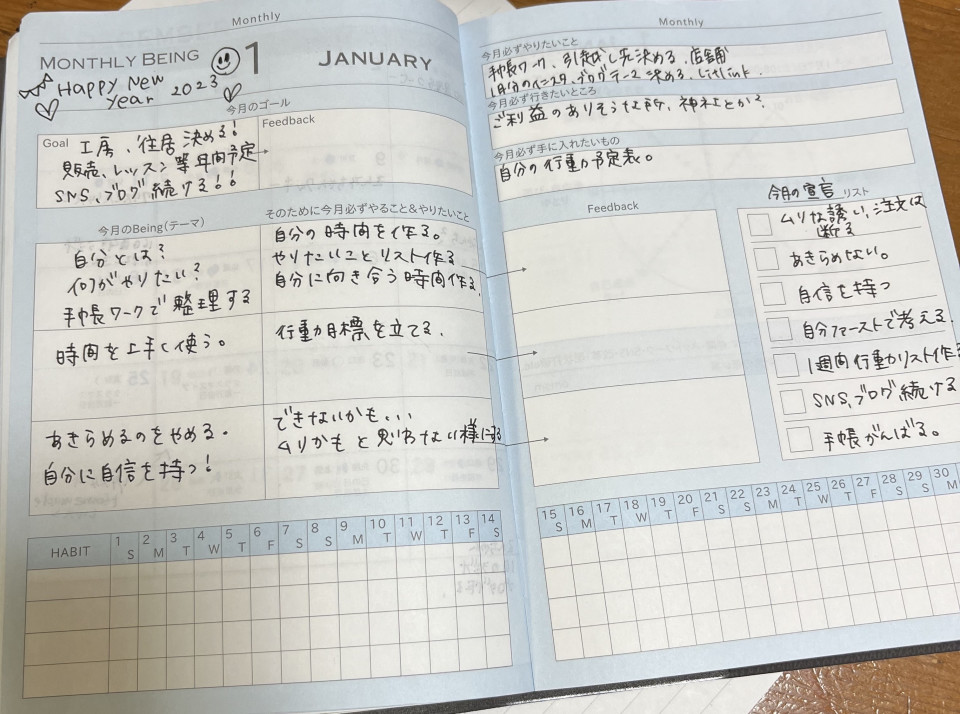 Monthly
MONTHLY BEING 1 JANUARY
Happy New
Year 2023
今月のゴール
Goal 工房、住居決める!
販売、レッスン等年間予定
SNS、ブログ続ける!!
Feedback
今月のBeing(テーマ)
自分とは?
何がやりたい?
手帳ワークで整理する
時間を上手く使う。
あきらめるのをやめる。
自分に自信を持つ!
そのために今月必ずやること&やりたいこと
自分の時間を作る。
やりたいことリスト作る
自分に向き合う時間作る。
行動目標を立てる。
できないかも...
ムリかもと思わない様にする
HABIT
1 S 2 M 3 T 4 W 5 T 6 F 7 S 8 S 9 M 10 T 11 W 12 T 13 F 14 S
Monthly
今月必ずやりたいこと
手帳ワーク、引越し先決める、店舗
自分のインスタ、ブログテーマ決める、Litlink.
今月必ず行きたいところ
ご利益のありそうな所、神社とか?
今月必ず手に入れたいもの
自分の行動予定表。
Feedback
今月の宣言リスト
ムリな誘い、注文は
断る
あきらめない。
自信を持つ
自分ファーストで考える。
1週間行動リスト作る
SNS、ブログ続ける
手帳がんばる。
15 S 16 M 17 T 18 W 19 T 20 F 21 S 22 S 23 M 24 T 25 W 26 T 27 F 28 S 29 S 30 M